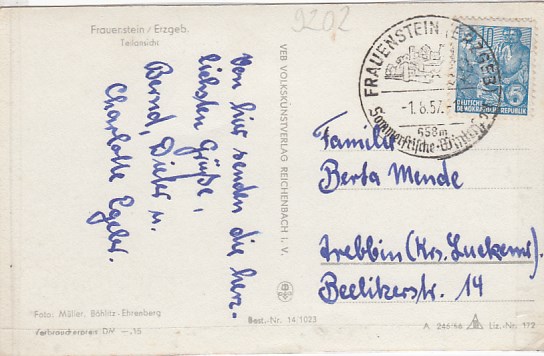 Frauenstein / Erzgeb.
Teilansicht
9202
Von hier senden die herz-
lichsten Grüße,
Bernd, Dieter u.
Charlotte Egeler.
VEB VOLKSKUNSTVERLAG REICHENBACH I. V.
FRAUENSTEIN (ERZGEB)
-1.8.57.
658m
Sommerfrische-Winter
DEUTSCHE
DEMOKRATISCHE REPUBLIK
Familie
Berta Mende
Trebbin (Krs. Luckenw).
Beelitzerstr. 14
Foto: Müller, Böhlitz-Ehrenberg
Verbraucherpreis DM —.15
Best.-Nr. 14/1023
A 246/56
Liz.-Nr. 172